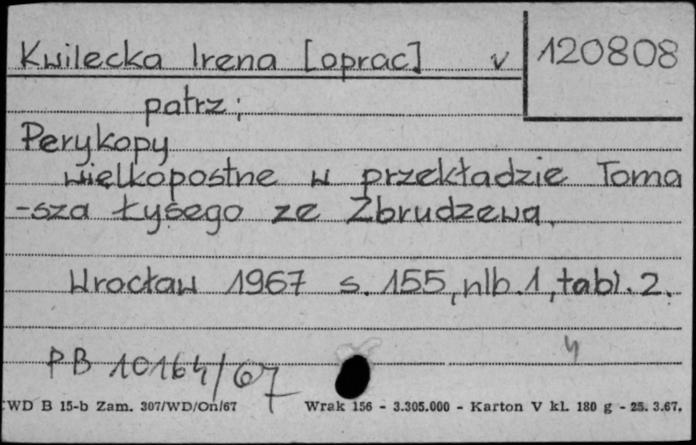 Kwilecka Irena [oprac] v 120808
patrz:
Perykopy
wielkopostne w przekładzie Toma
-sza Łysego ze Zbrudzewa.
Wrocław 1967 s. 155, nlb. 1, tabl. 2.
4
PB 10164/67
WD B 15-b Zam. 307/WD/On/67 Wrak 156 - 3.305.000 - Karton V kl. 180 g - 25. 3.67.